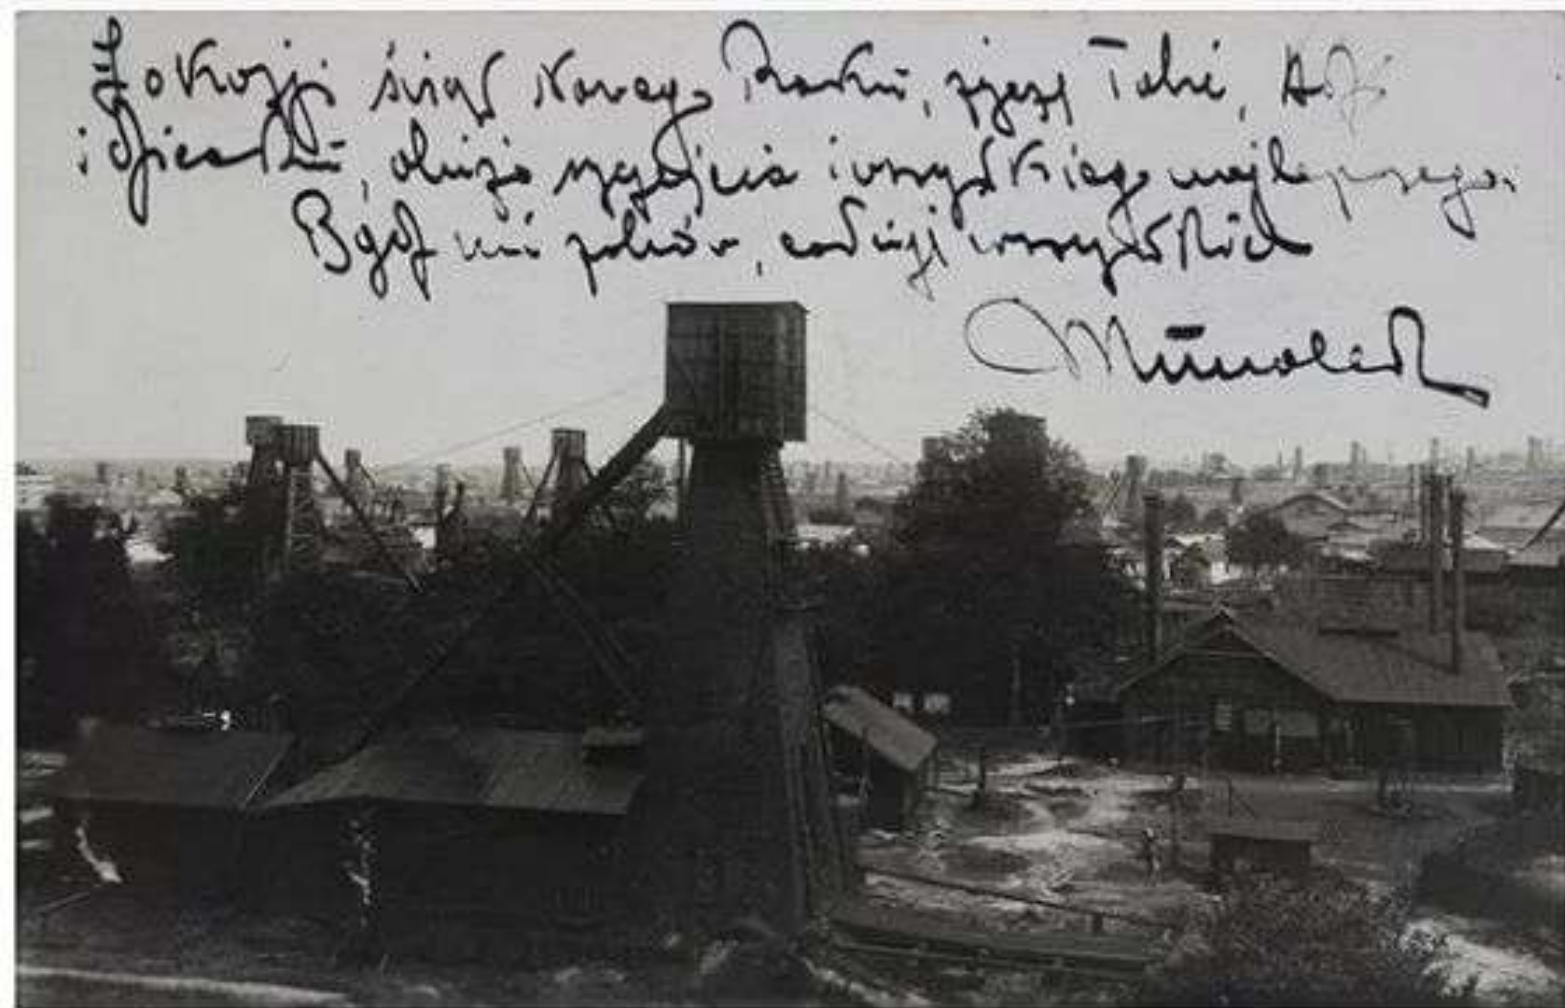 Z okazji świąt Nowego Roku, życzę Tobie,
i Dziecku, dużo szczęścia i wszystkiego najlepszego.
Bądź mi zdrów, całuję wszystkich